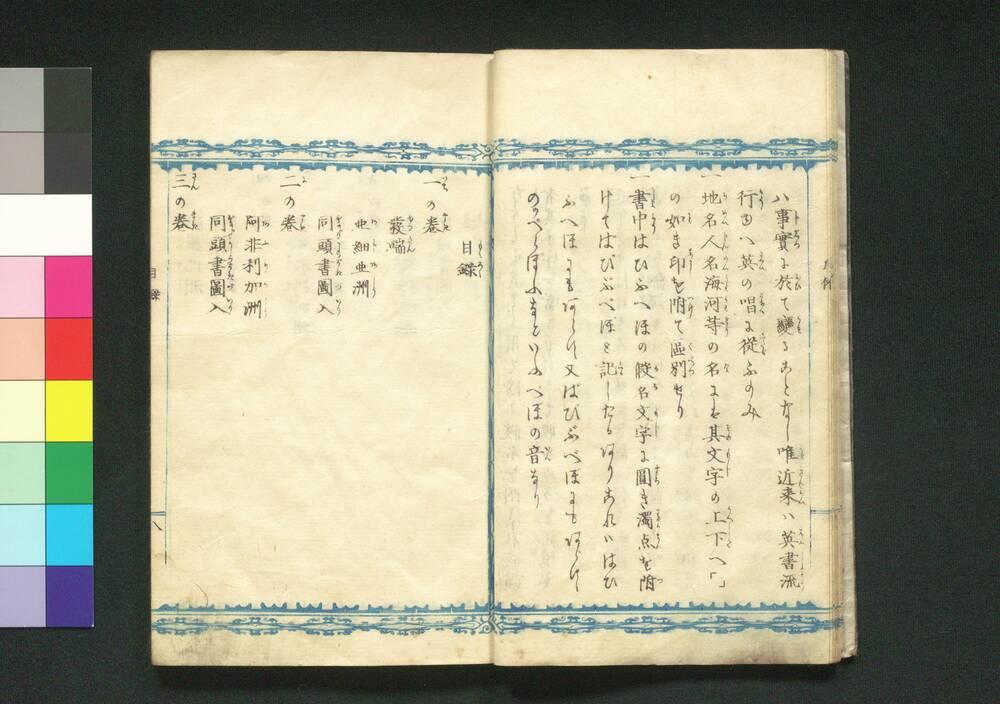 ハ事實に於て變ることなし唯近来ハ英書流
行ゆへ英の唱に從ふのみ
一地名人名海河等の名にハ其文字の上下へ「」
の如き印を附て區別せり
一書中はひふへほの假名文字に圓き濁点を附
けてぱぴぷぺぽと記したるありこれハはひ
ふへほにもあらず又ばびぶべぼにもあらず
なり
凡例
目録
一の巻
發端
亜細亜洲
同頭書圖入
二の巻
阿非利加洲
同頭書圖入
三の巻
目録